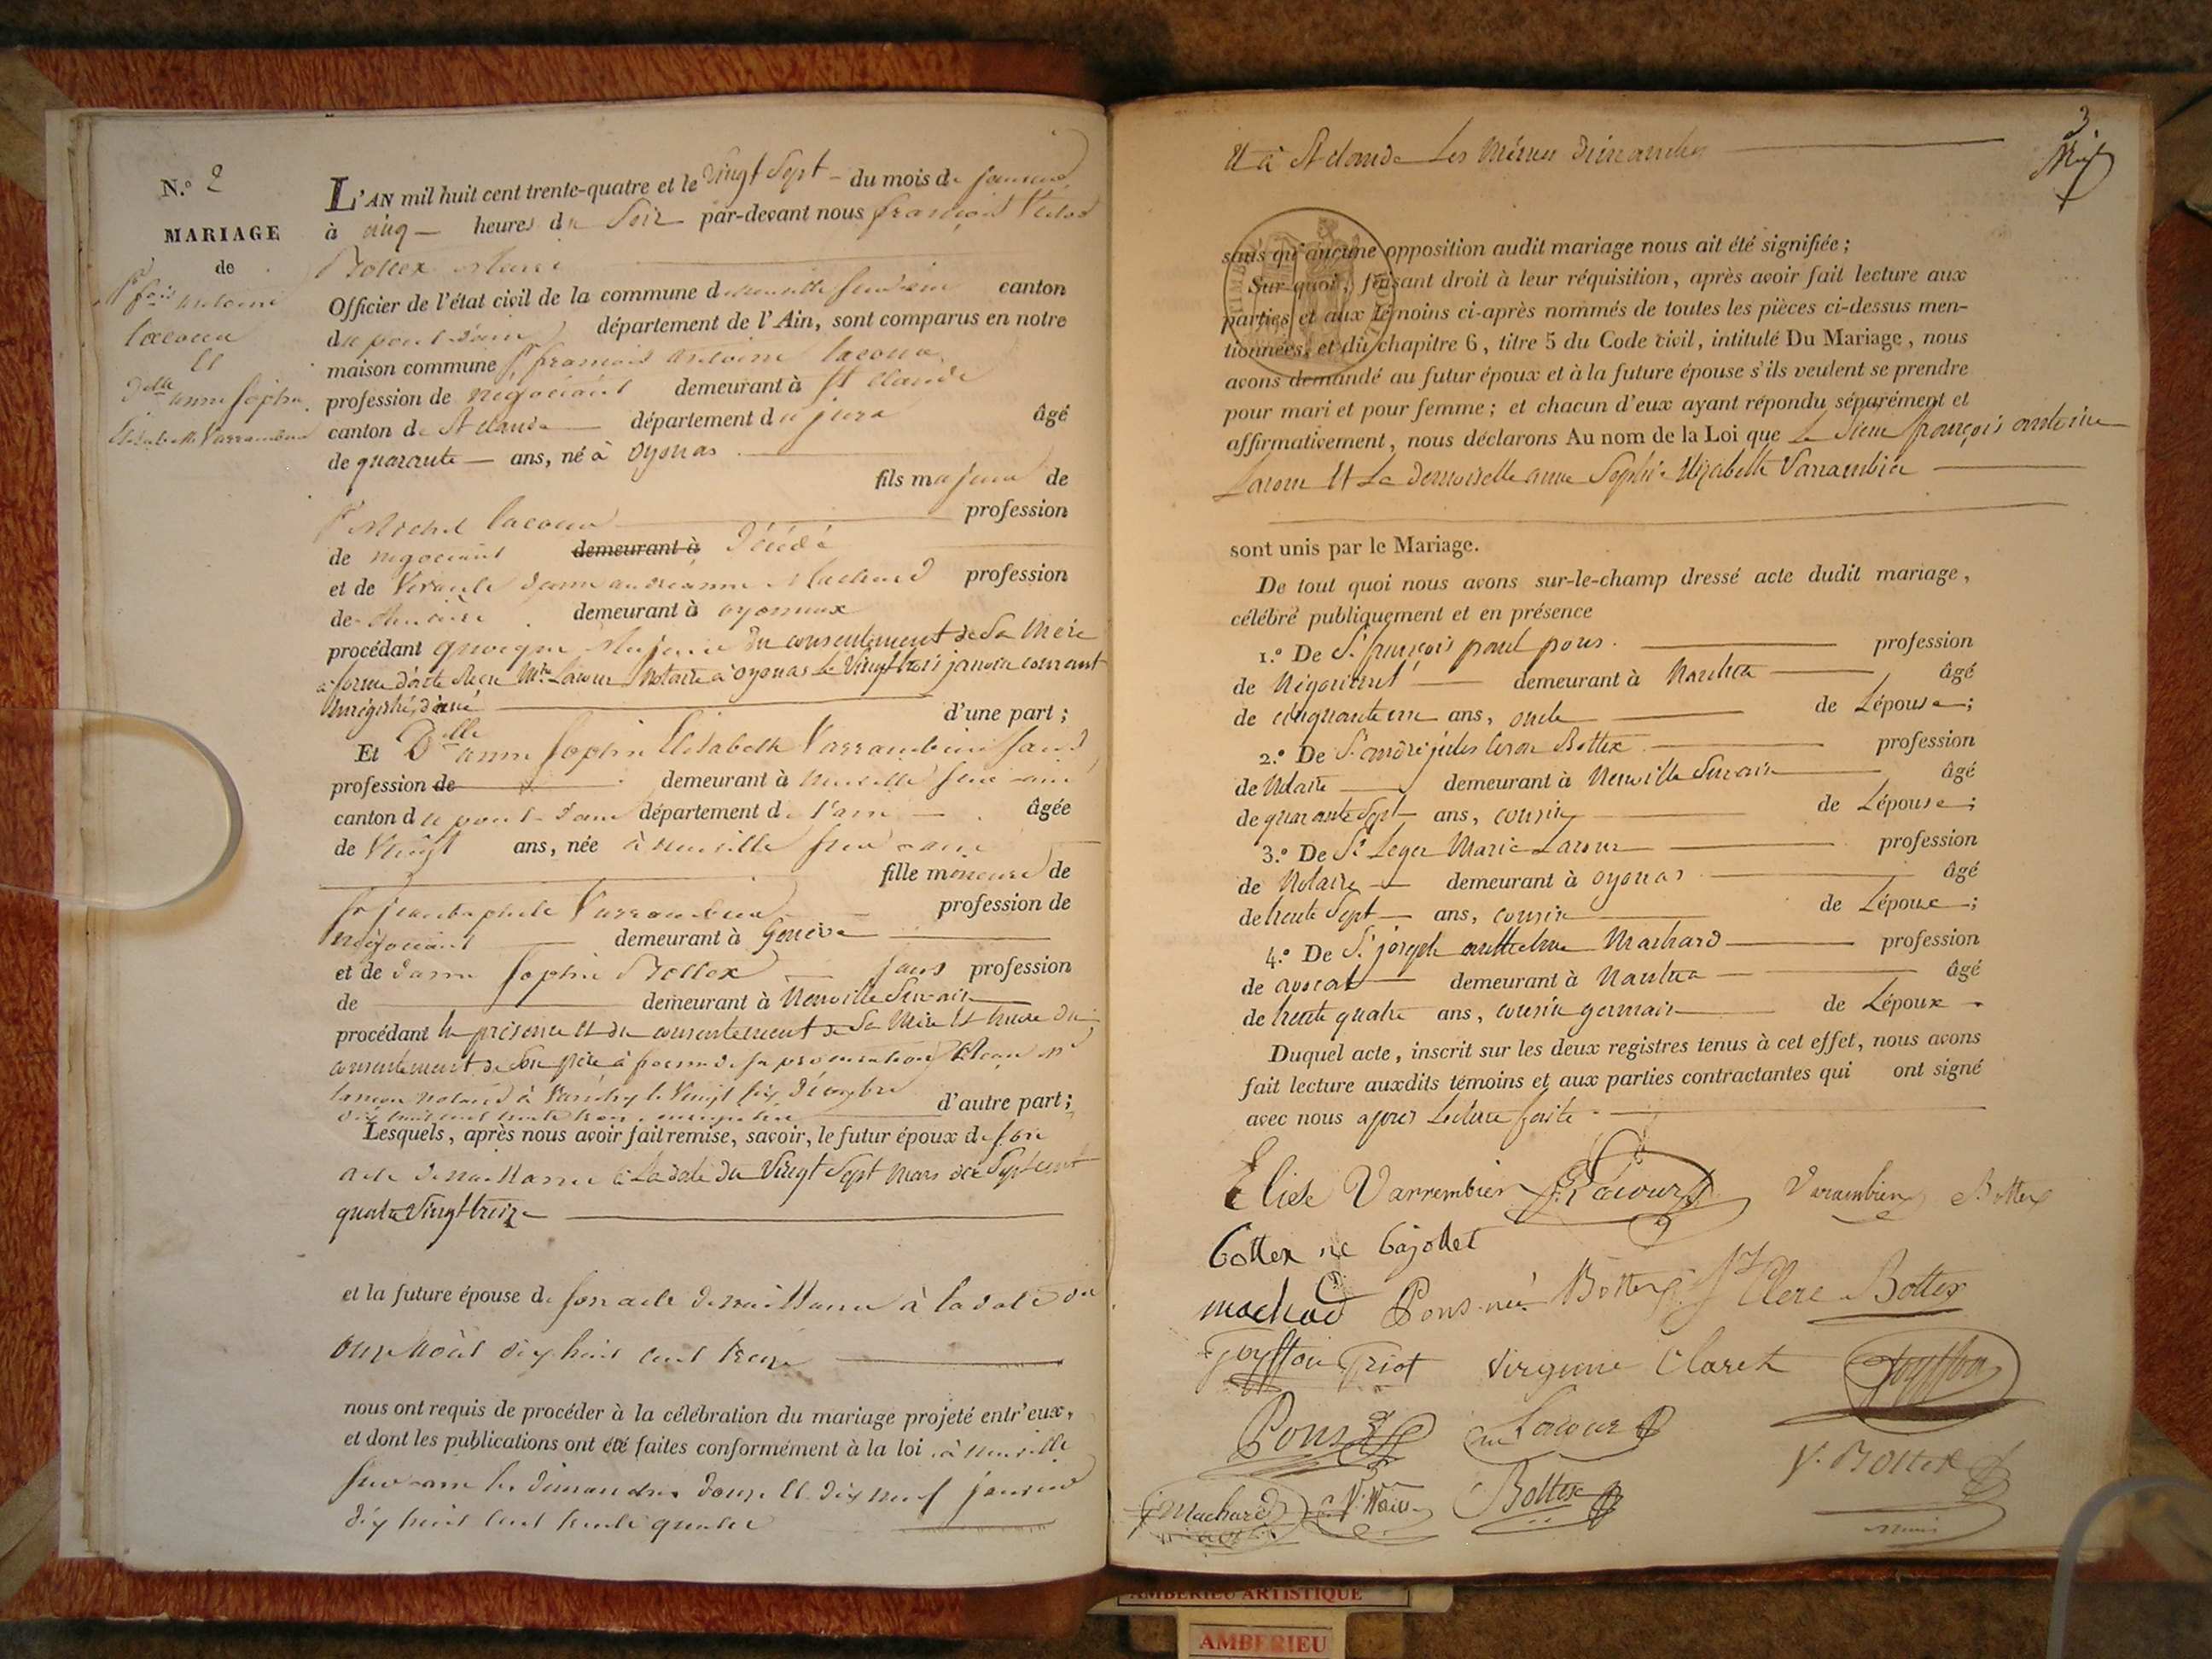 N.° 2
MARIAGE
de
Sr fois antoine
Lacour
Et
Delle anne Sophie
Elisabeth Varrambier
L'AN mil huit cent trente-quatre et le Vingt Sept du mois de janvier
à cinq heures du Soir par-devant nous françois Victor
Bottex Maire
Officier de l'état civil de la commune de neuville sur ain canton
du pont d'ain département de l'Ain, sont comparus en notre
maison commune Sr françois antoine Lacour
profession de négociant demeurant à St Claude
canton de St Claude département du jura âgé
de quarante ans, né à oyonas
fils majeur de
Sr Michel Lacour profession
de négociant demeurant à décédé
et de dame Machard profession
de demeurant à oyonnax
procédant quoique Majeur du consentement de Sa Mère
a forme d'acte Reçu Mre Lacour Notaire a oyonas Le Vingt trois janvier courant
Enregistré
d'une part ;
Et Dlle anne Sophie Elisabeth Varrambier sans
profession de demeurant à neuville sur ain
canton du pont d'ain département de l'ain âgée
de Vingt ans, née à neuville sur ain
fille mineure de
Sr jean baptiste Varrambier profession de
négociant demeurant à Genève
et de dame Sophie Bottex sans profession
de demeurant à Neuville Sur ain
procédant En présence et du consentement de Sa Mère Et Encore du
consentement de Son père à forme de sa procuration Reçu Me
notaire à le Vingt six Décembre
dix huit cent trente trois, enregistrée d'autre part ;
Lesquels, après nous avoir fait remise, savoir, le futur époux de son
acte de naissance à La date du Vingt Sept Mars mil Sept cent
quatre Vingt treize
et la future épouse de son acte de naissance à la date du
onze Août dix huit cent treize
nous ont requis de procéder à la célébration du mariage projeté entr'eux,
et dont les publications ont été faites conformément à la loi à neuville
sur ain les dimanches douze Et dix neuf janvier
dix huit cent trente quatre
3
Et à St Claude Les Mêmes dimanches
sans qu'aucune opposition audit mariage nous ait été signifiée ;
Sur quoi, faisant droit à leur réquisition, après avoir fait lecture aux
parties et aux témoins ci-après nommés de toutes les pièces ci-dessus men-
tionnées, et du chapitre 6, titre 5 du Code civil, intitulé Du Mariage, nous
avons demandé au futur époux et à la future épouse s'ils veulent se prendre
pour mari et pour femme ; et chacun d'eux ayant répondu séparément et
affirmativement, nous déclarons Au nom de la Loi que Le Sieur françois antoine
Lacour Et La Demoiselle anne Sophie Elizabeth Varrambier
sont unis par le Mariage.
De tout quoi nous avons sur-le-champ dressé acte dudit mariage,
célébré publiquement et en présence
1.° De Sr françois paul pons profession
de Négociant demeurant à Nantua âgé
de cinquante un ans, oncle de Lépouse ;
2.° De Sr andré jules César Bottex profession
de Notaire demeurant à Neuville Sur ain âgé
de quarante Sept ans, cousin de Lépouse ;
3.° De Sr Leger Marie Lacour profession
de Notaire demeurant à oyonas âgé
de trente Sept ans, cousin de Lépoux ;
4.° De Sr joseph anthelme Machard profession
de avocat demeurant à Nantua âgé
de trente quatre ans, cousin germain de Lépoux
Duquel acte, inscrit sur les deux registres tenus à cet effet, nous avons
fait lecture auxdits témoins et aux parties contractantes qui ont signé
avec nous apres Lecture faite
Elise Varrembier Lacour Varambier Bottex
Bottex né Gajottet
machad Pons né Bottex St Clere Bottex
Goyffon Griot Virginie Claret Goyffon
Pons Lacour
V. Bottex
Machard Bottex
AMBERIEU ARTISTIQUE
AMBERIEU